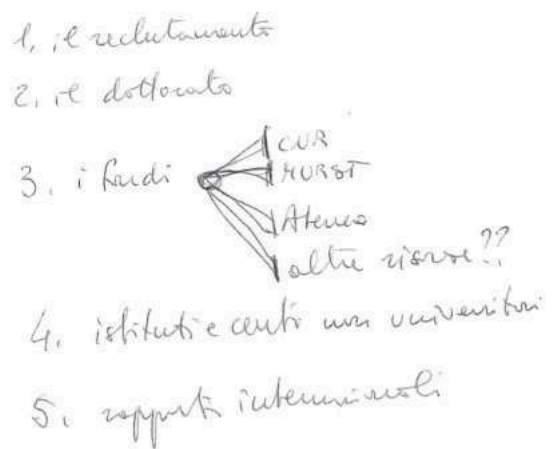 1. il reclutamento
2. il dottorato
3. i fondi
CUR
MURST
Ateneo
altre risorse??
4. istituti e centri non universitari
5. rapporti internazionali